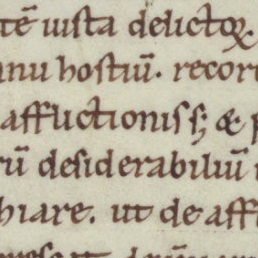 tẽ iusta delictoꝝ
anu hostiũ. recor
afflictionis sꝫ &
rũ desiderabiliũ
hiare. ut de affl